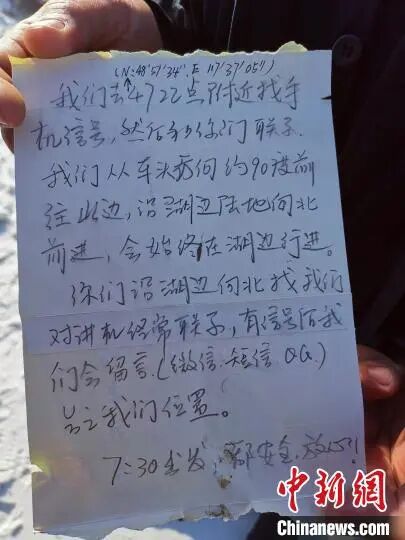 (N:48°57′34″, E 117°37′05″)
我们去4722点附近找手
机信号,然后和你们联系.
我们从车头方向约90度前
往此边,沿湖边陆地向北
前进,会始终在湖边行进。
你们沿湖边向北找我们
对讲机经常联系,有信号后我
们会留言.(微信.短信 QQ.)
告之我们位置。
7:30出发,都安全.放心!
中新网
Chinanews.com